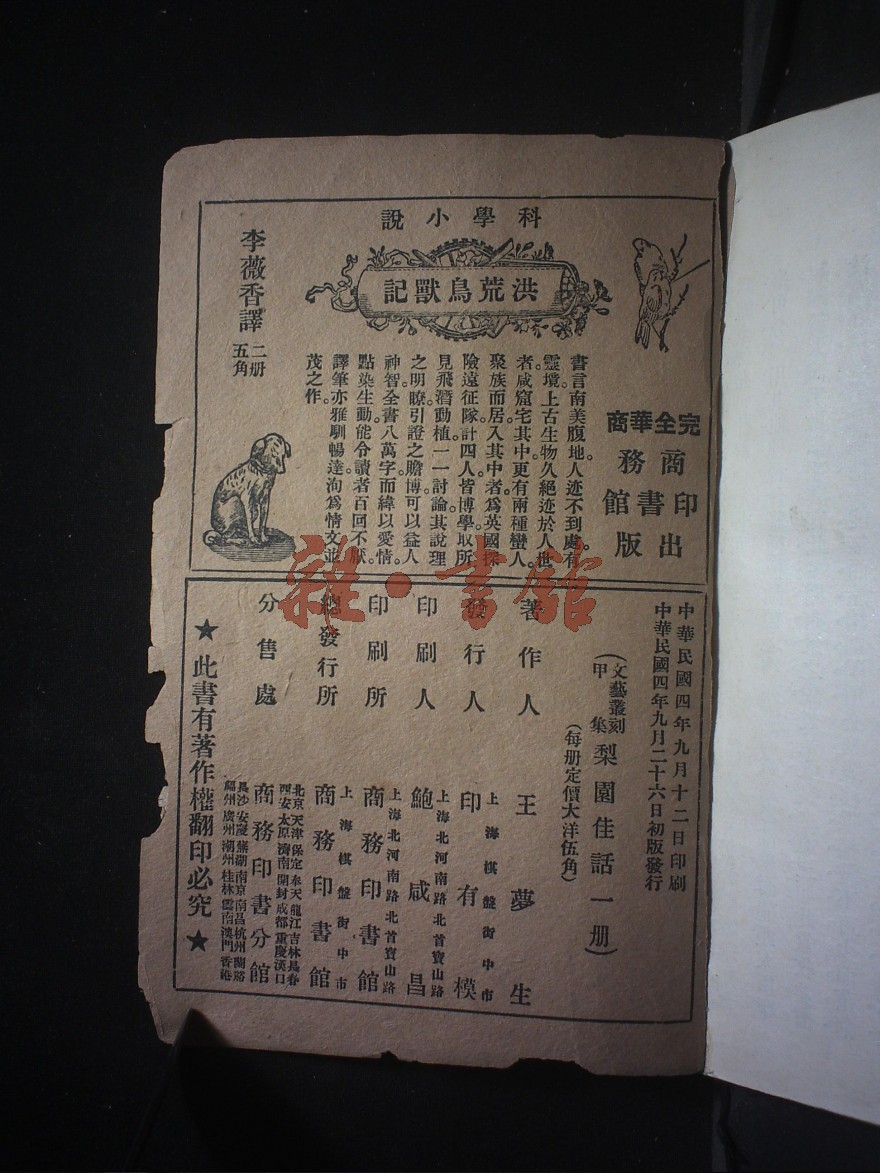 科學小說
洪荒鳥獸記
完全華商
商務
印書館
出版
書言南美腹地。人迹不到處。有
靈境。上古生物久絕迹於人世
者。咸窟宅其中。更有兩種蠻人。
聚族而居。入其中者。爲英國探
險遠征隊。計四人。皆博學。取所
見飛潛動植。一一討論。其說理
之明瞭。引證之贍博。可以益人
神智。全書八萬字。而緯以愛情。
點染生動。能令讀者百回不厭。
譯筆亦雅馴暢達。洵爲情文並
茂之作。
李薇香譯
二册
五角
中華民國四年九月十二日印刷
中華民國四年九月二十六日初版發行
(文藝叢刻甲集 梨園佳話一册)
(每册定價大洋伍角)
著作人 王夢生
發行人 印有模
上海棋盤街中市
印刷人 鮑咸昌
上海北河南路北首寶山路
印刷所 商務印書館
上海北河南路北首寶山路
總發行所 商務印書館
上海棋盤街中市
分售處 商務印書分館
北京天津保定奉天龍江吉林長春
西安太原濟南開封成都重慶漢口
長沙安慶蕪湖南京南昌杭州蘭谿
福州廣州潮州桂林雲南澳門香港
★此書有著作權翻印必究★
雜·書館